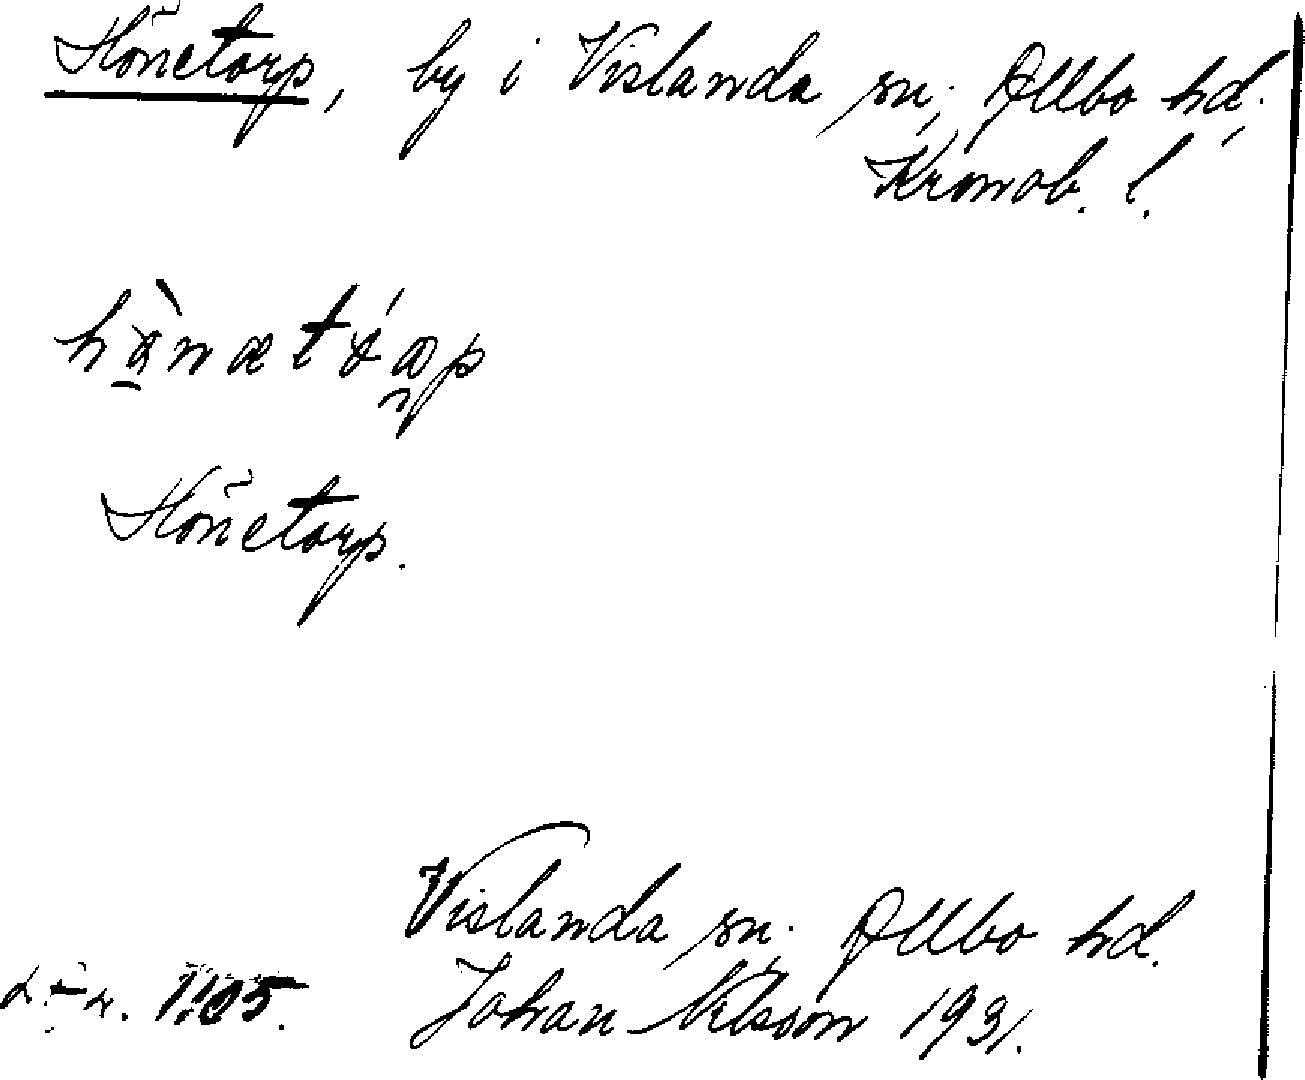 Hönetorp, by i Vislanda sn, Allbo hd,
Kronob. l.
Hönetorp.
Vislanda sn. Allbo hd.
Johan Nilsson 1931.